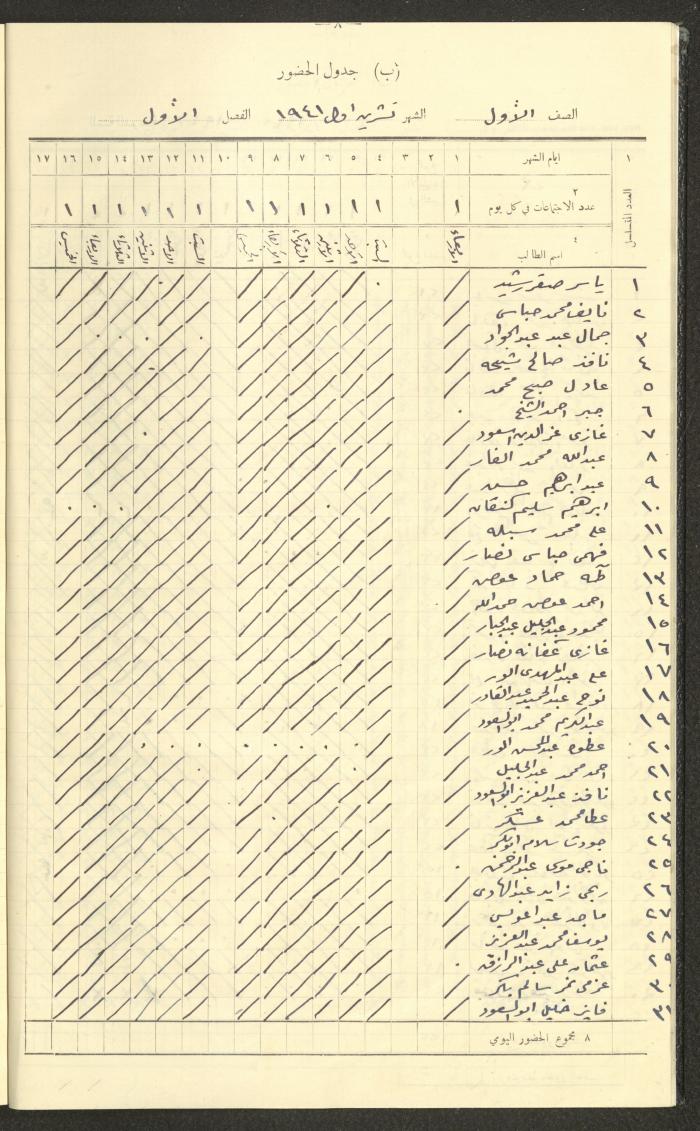 ٨
(ب) جدول الحضور
الصف الأول الشهر تشرين اول ١٩٤١ الفصل الأول
١ ايام الشهر ١ ٢ ٣ ٤ ٥ ٦ ٧ ٨ ٩ ١٠ ١١ ١٢ ١٣ ١٤ ١٥ ١٦ ١٧
العدد المتسلسل
٢
عدد الاجتماعات في كل يوم ١ ١ ١ ١ ١ ١ ١ ١ ١ ١ ١ ١ ١
٤
اسم الطالب الاربعاء السبت الاحد الاثنين الثلاثاء الاربعاء الخميس السبت الاحد الاثنين الثلاثاء الاربعاء الخميس
١ ياسر صقر رشيد
٢ نايف محمد عباس
٣ جمال عبد عبد الجواد
٤ نافذ صالح شيخه
٥ عادل صبح محمد
٦ جبر احمد الشيخ
٧ غازي عز الدين اسعود
٨ عبدالله محمد الفار
٩ عبد ابراهيم حسن
١٠ ابراهيم سليم
١١ علي محمد
١٢ فهمي عباس نصار
١٣ طه حماد عوض
١٤ احمد عوض حمدالله
١٥ محمود عبد الجليل عبد الجبار
١٦ غازي نصار
١٧ علي عبد المهدي
١٨ نوح عبد الحميد عبد القادر
١٩ عبد الكريم محمد ابو السعود
٢٠ عبد المحسن
٢١ احمد محمد عبد الجليل
٢٢ نافذ عبد العزيز ابو السعود
٢٣ عطا محمد
٢٤ جودت سلامه ابو بكر
٢٥ ناجي موسى عبد الرحمن
٢٦ ربحي زايد عبد الهادي
٢٧ ماجد عبد
٢٨ يوسف محمد عبد العزيز
٢٩ عثمان علي عبد الرازق
٣٠ عزمي نمر سالم
٣١ فايز خليل ابو السعود
٨ مجموع الحضور اليومي